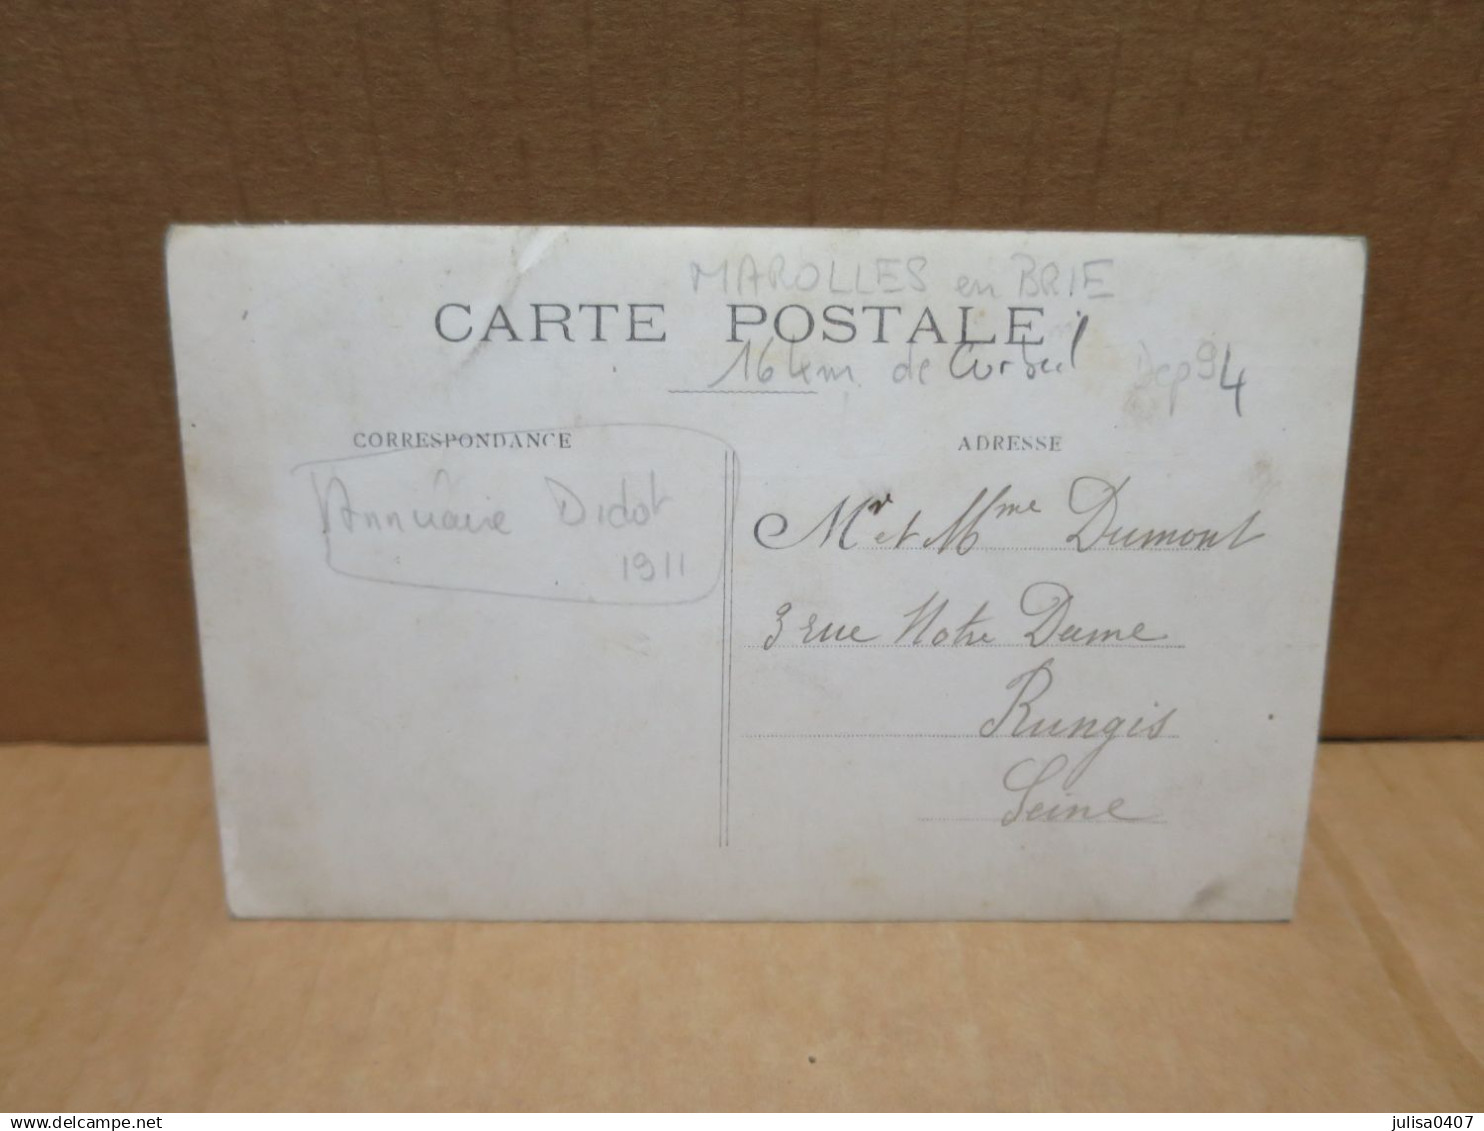 MAROLLES en BRIE
CARTE POSTALE
16 km de Corbeil Dep 94
CORRESPONDANCE
ADRESSE
Annuaire Didot
1911
Mr et Mme Dumont
3 rue Notre Dame
Rungis
Seine
www.delcampe.net
julisa0407